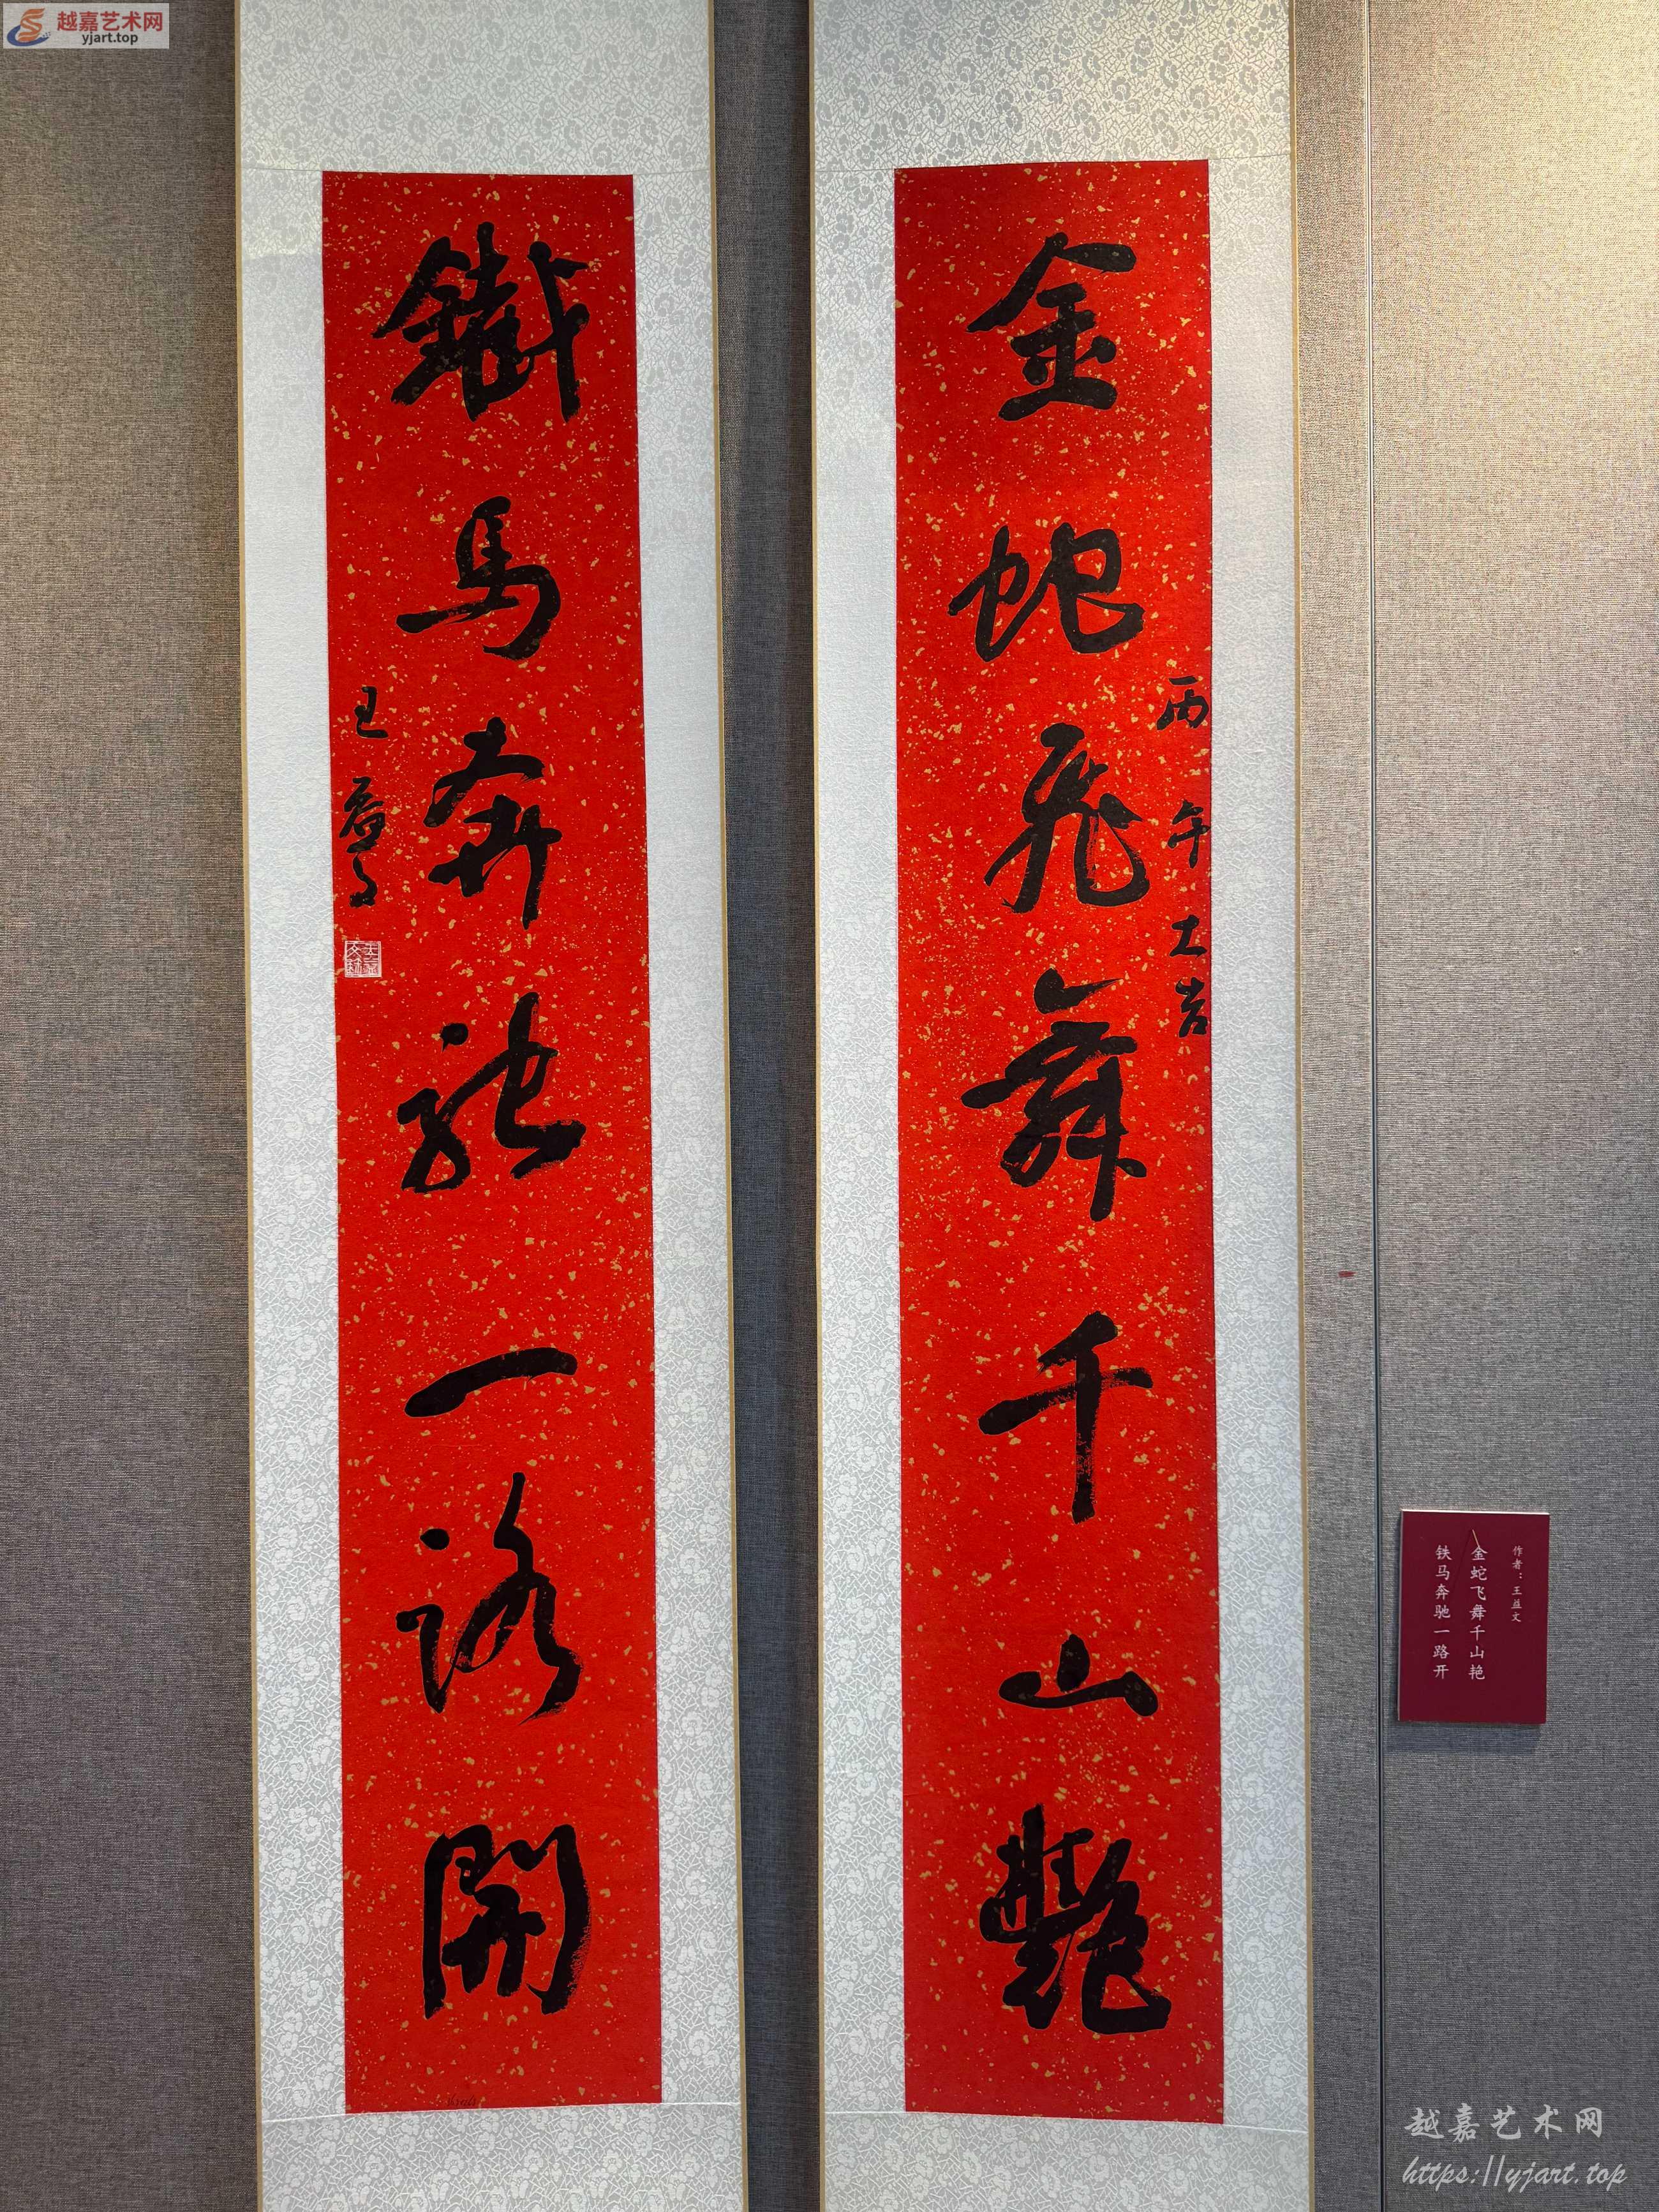 越嘉艺术网
yjart.top
金蛇飛舞千山艷
丙午大吉
鐵馬奔馳一路開
王益文
作者：王益文
金蛇飞舞千山艳
铁马奔驰一路开
越嘉艺术网
https://yjart.top